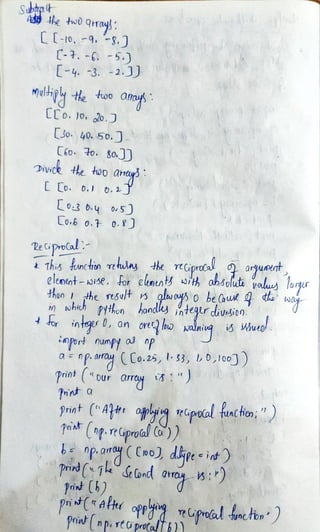 Subtract the two arrays:
[[-10. -9. -8.]
[-7. -6. -5.]
[-4. -3. -2.]]
Multiply the two arrays:
[[0. 10. 20.]
[30. 40. 50.]
[60. 70. 80.]]
Divide the two arrays:
[[0. 0.1 0.2]
[0.3 0.4 0.5]
[0.6 0.7 0.8]
Reciprocal:-
* This function returns the reciprocal of argument,
element-wise. For elements with absolute values larger
than 1 the result is always 0 because of the way
in which python handles integer division.
* For integer 0, an overflow warning is issued.
import numpy as np
a = np.array([0.25, 1.33, 1,0,100])
print("our array is:")
print a
print("After applying reciprocal function:")
print(np.reciprocal(a))
b = np.array([100], dtype=int)
print("The Second array is:")
print(b)
print("After applying reciprocal function")
print(np.reciprocal(b))